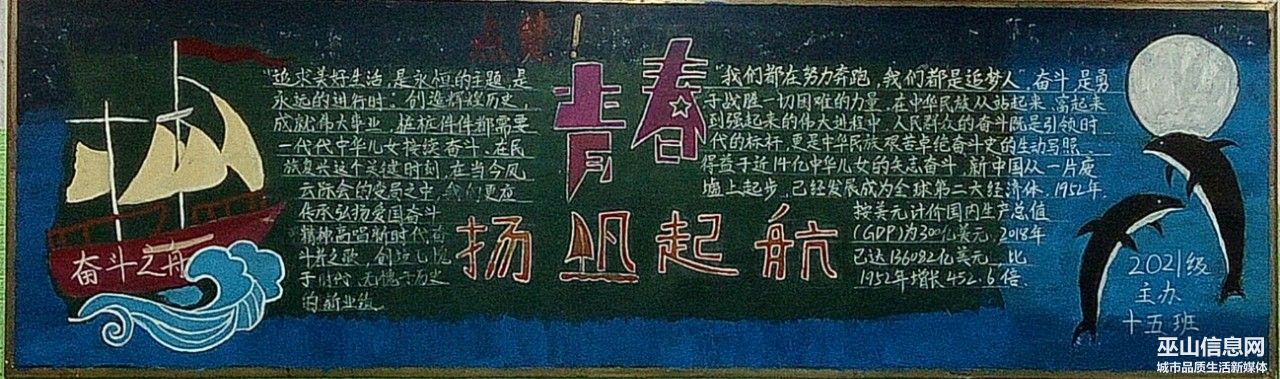 点赞!
青春
扬帆起航
"追求美好生活,是永恒的主题,是
永远的进行时;创造辉煌历史,
成就伟大事业,桩桩件件都需要
一代代中华儿女接续奋斗。在民
族复兴这个关键时刻,在当今风
云际会的变局之中,我们更应
传承弘扬爱国奋斗
精神,高唱新时代奋
斗者之歌,创造无愧
于时代、无愧于历史
的新业绩
"我们都在努力奔跑,我们都是追梦人"奋斗,是勇
于战胜一切困难的力量,在中华民族从站起来、富起来
到强起来的伟大进程中,人民群众的奋斗既是引领时
代的标杆,更是中华民族艰苦卓绝奋斗史的生动写照、
得益于近14亿中华儿女的矢志奋斗,新中国从一片废
墟上起步,已经发展成为全球第二大经济体,1952年,
按美元计价国内生产总值
(GDP)为300亿美元,2018年
已达136082亿美元,比
1952年增长452.6倍.
奋斗之舟
2021级
主办
十五班
巫山信息网
城市品质生活新媒体